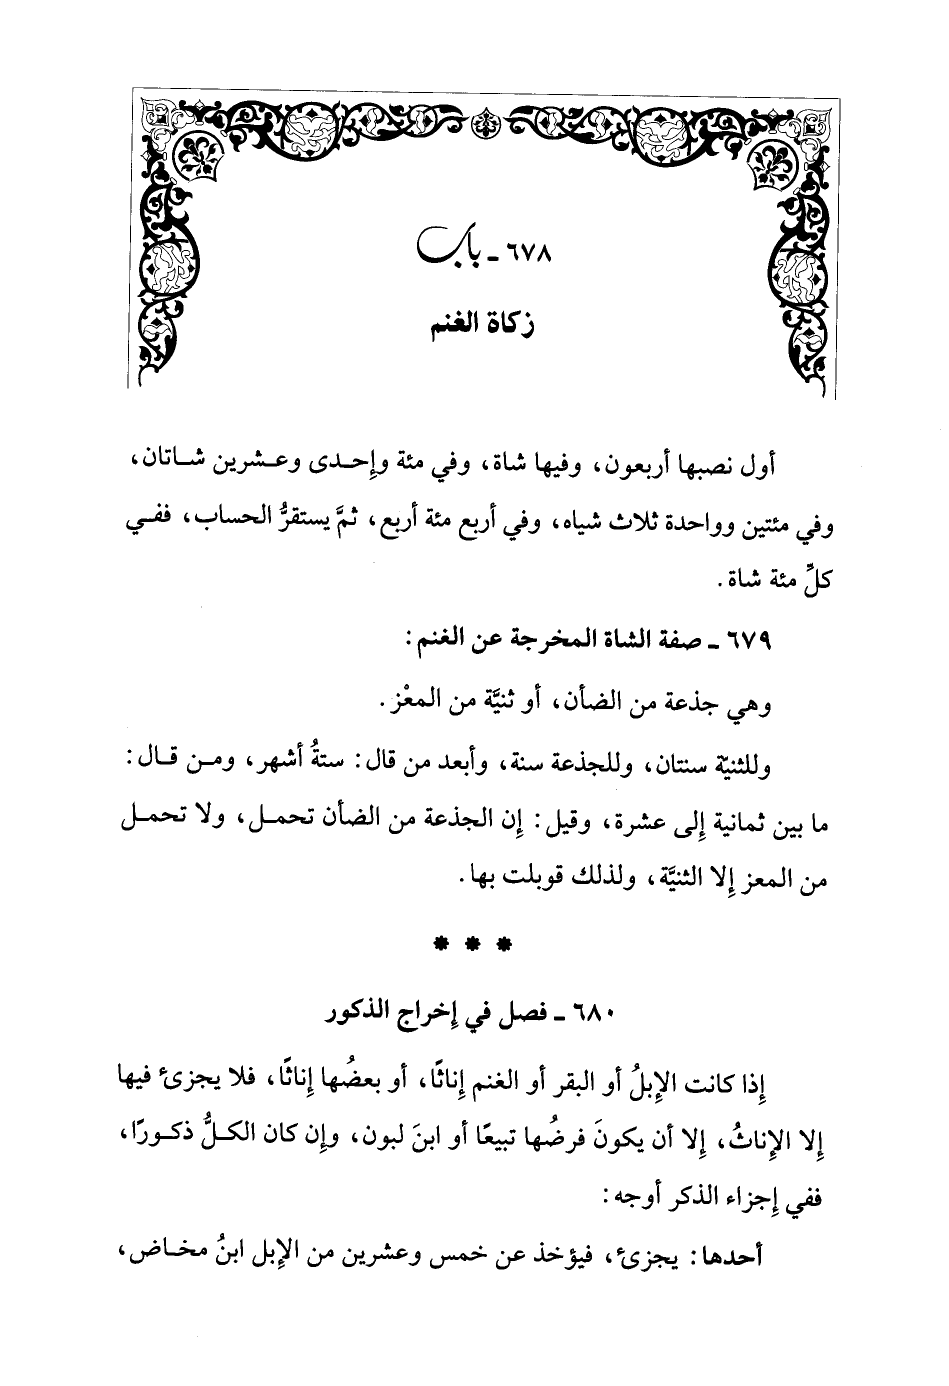 ٦٧٨ ـ باب
زكاة الغنم
أول نصبها أربعون، وفيها شاة، وفي مئة وإِحـدى وعـشرين شـاتان،
وفي مئتين وواحدة ثلاث شياه، وفي أربع مئة أربع، ثمَّ يستقرُّ الحساب، ففـي
كلِّ مئة شاة.
٦٧٩ ـ صفة الشاة المخرجة عن الغنم:
وهي جذعة من الضأن، أو ثنيَّة من المعْز.
وللثنيّة سنتان، وللجذعة سنة، وأبعد من قال: ستةُ أشهر، ومـن قـال:
ما بين ثمانية إِلى عشرة، وقيل: إِن الجذعة من الضأن تحمـل، ولا تحمـل
من المعز إِلا الثنيَّة، ولذلك قوبلت بها.
* * *
٦٨٠ ـ فصل في إِخراج الذكور
إِذا كانت الإِبلُ أو البقر أو الغنم إِناثًا، أو بعضُها إِناثًا، فلا يجزئ فيها
إِلا الإِناثُ، إِلا أن يكونَ فرضُها تبيعًا أو ابنَ لبون، وإِن كان الكـلُّ ذكـورًا،
ففي إِجزاء الذكر أوجه:
أحدها: يجزئ، فيؤخذ عن خمس وعشرين من الإِبل ابنُ مخـاض،